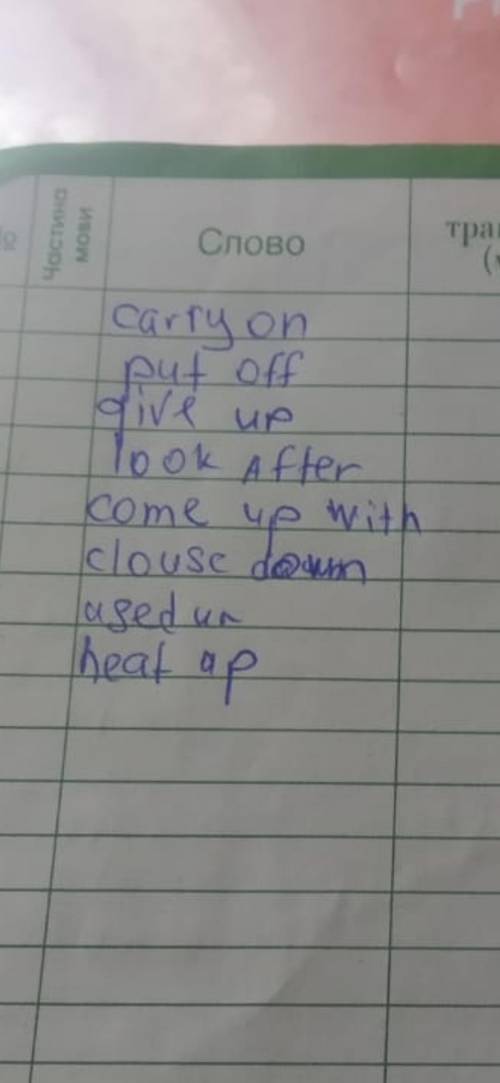 №
Частина мови
Слово
carry on
put off
give up
look After
come up with
clouse down
used up
heat up